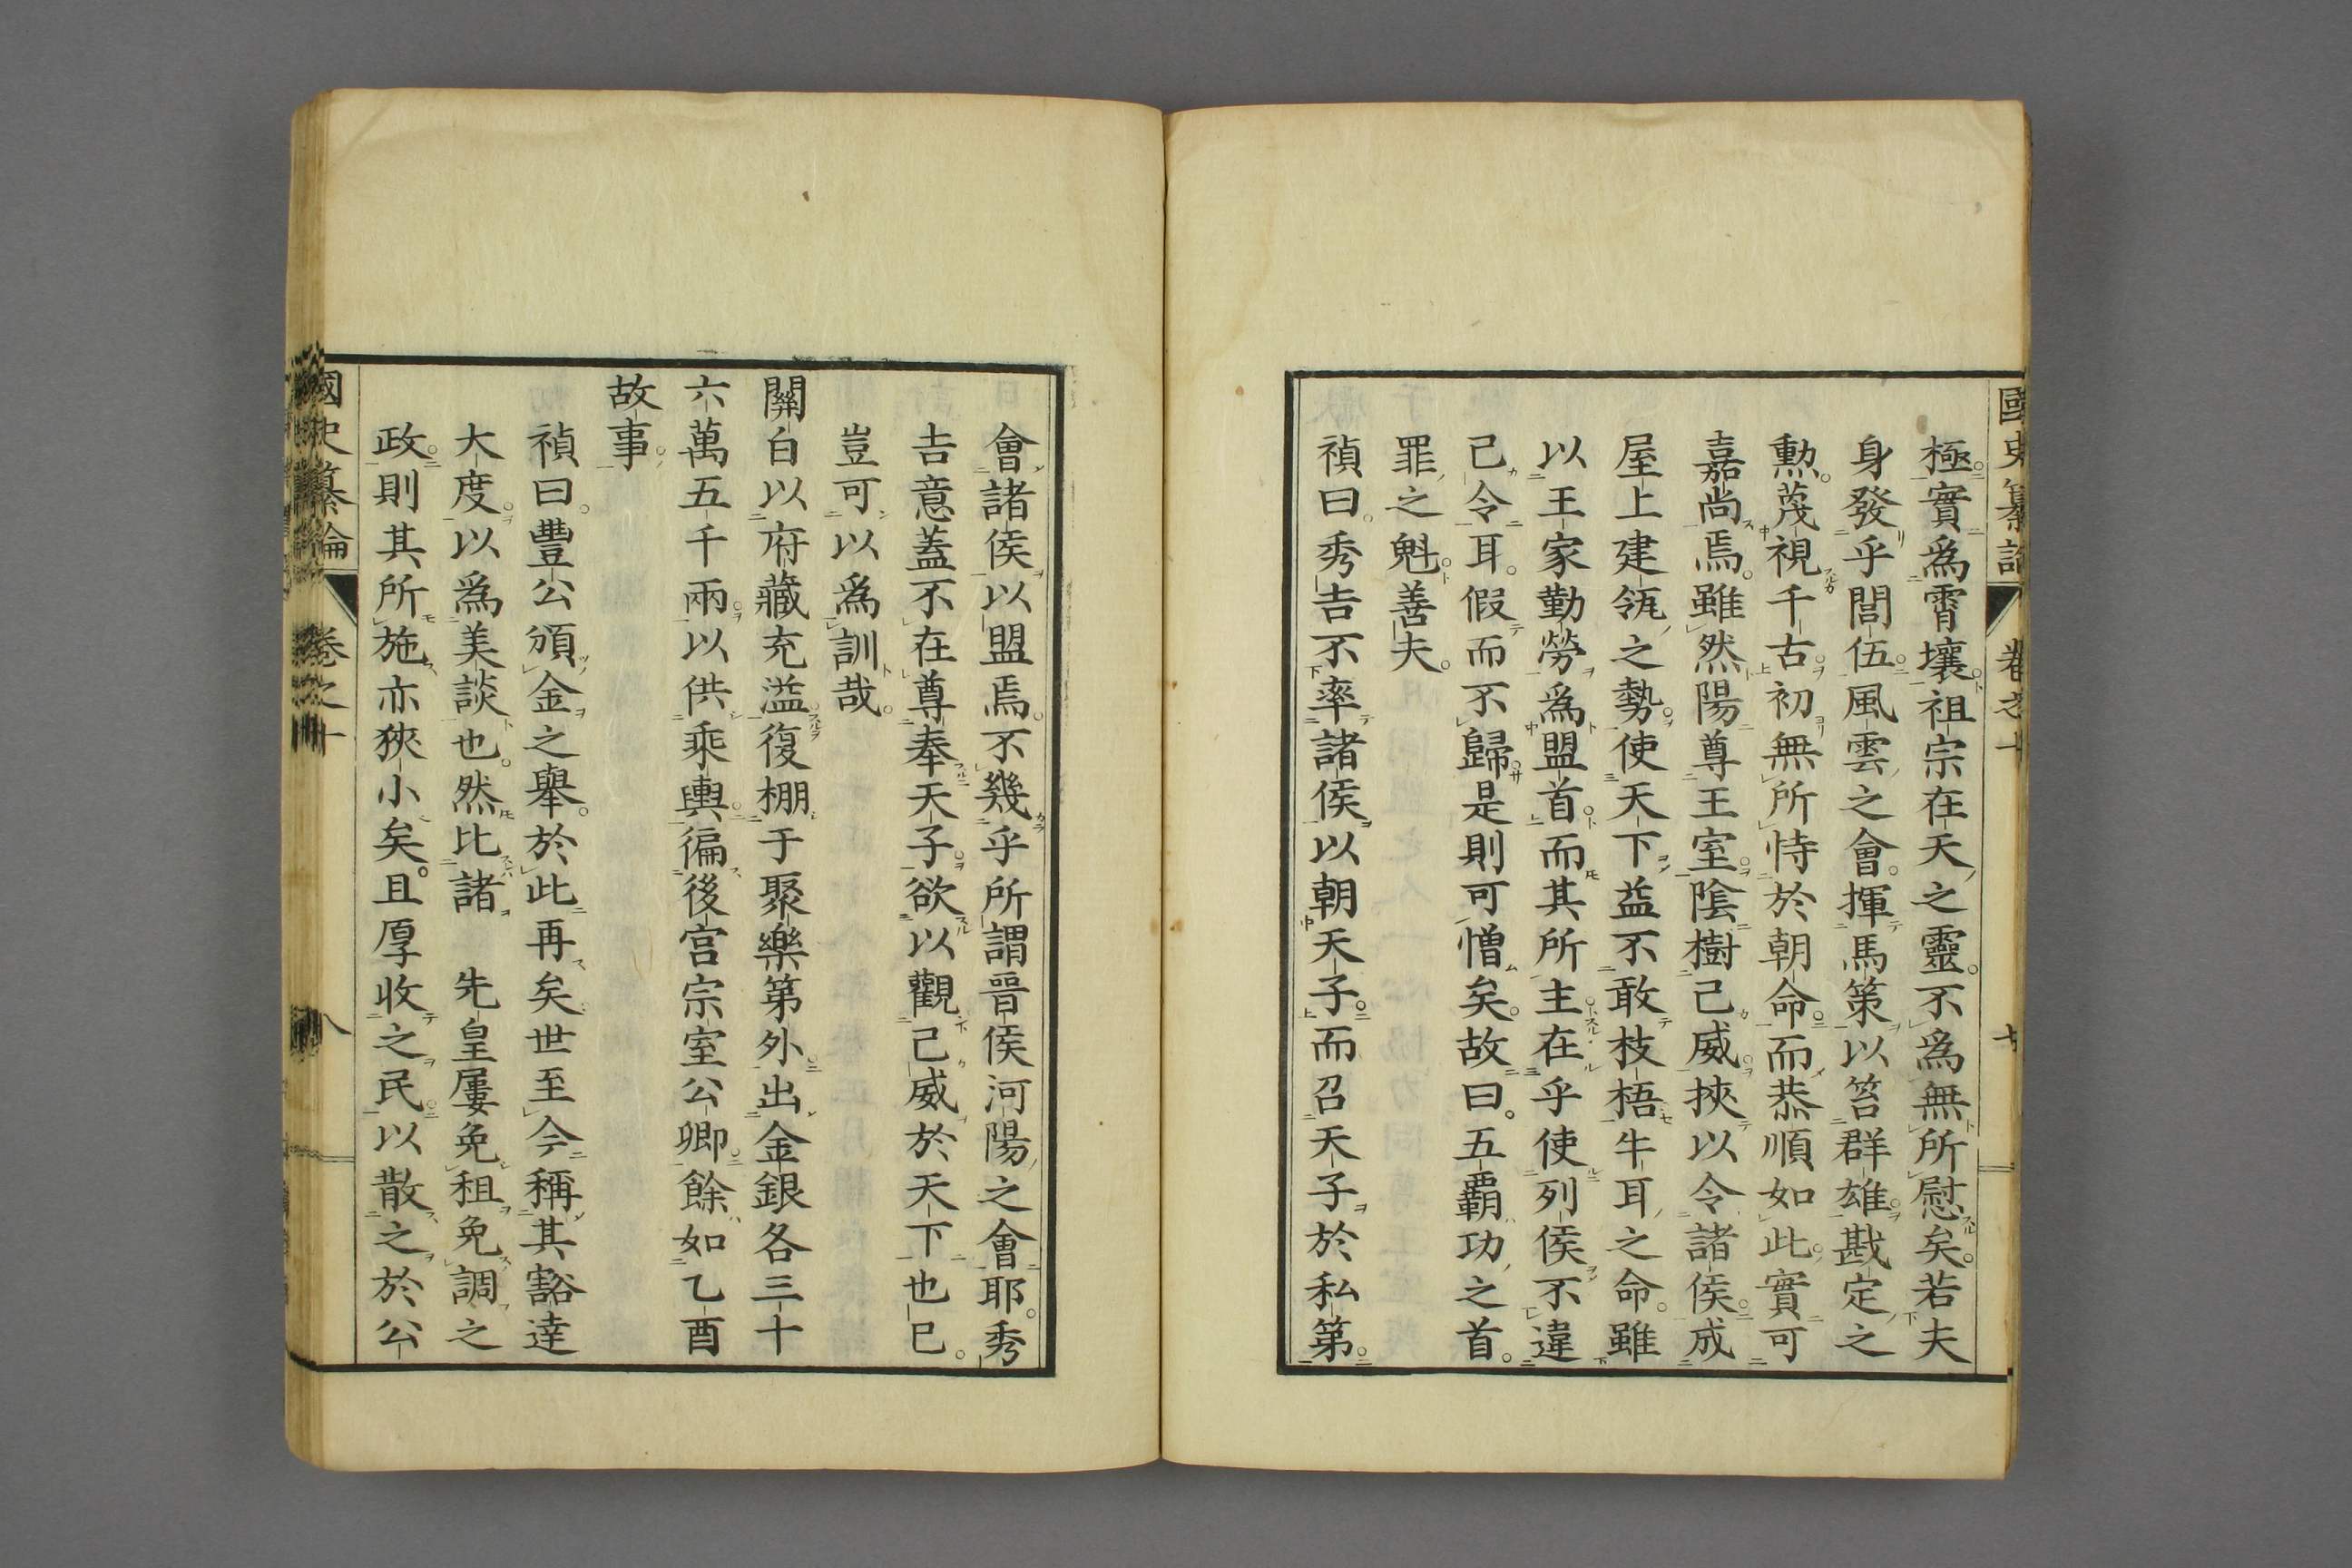 國史纂論 卷之十
極實爲霄壤祖宗在天之靈不爲無所慰矣若夫
身發乎閭伍風雲之會揮馬策以笞群雄戡定之
勲蔑視千古初無所恃於朝命而恭順如此實可
嘉尚焉雖然陽尊王室陰樹己威挾以令諸侯成
屋上建瓴之勢使天下益不敢枝梧牛耳之命雖
以王家勤勞爲盟首而其所主在乎使列侯不違
己令耳假而不歸是則可憎矣故曰五覇功之首
罪之魁善夫
禎曰秀吉不率諸侯以朝天子而召天子於私第
會諸侯以盟焉不幾乎所謂晉侯河陽之會耶秀
吉意蓋不在尊奉天子欲以觀己威於天下也已
豈可以爲訓哉
關白以府藏充溢復棚于聚樂第外出金銀各三十
六萬五千兩以供乘輿徧後宮宗室公卿餘如乙酉
故事
禎曰豐公頒金之舉於此再矣世至今稱其豁達
大度以爲美談也然比諸 先皇屢免租免調之
政則其所施亦狹小矣且厚收之民以散之於公
國史纂論 卷之十 八